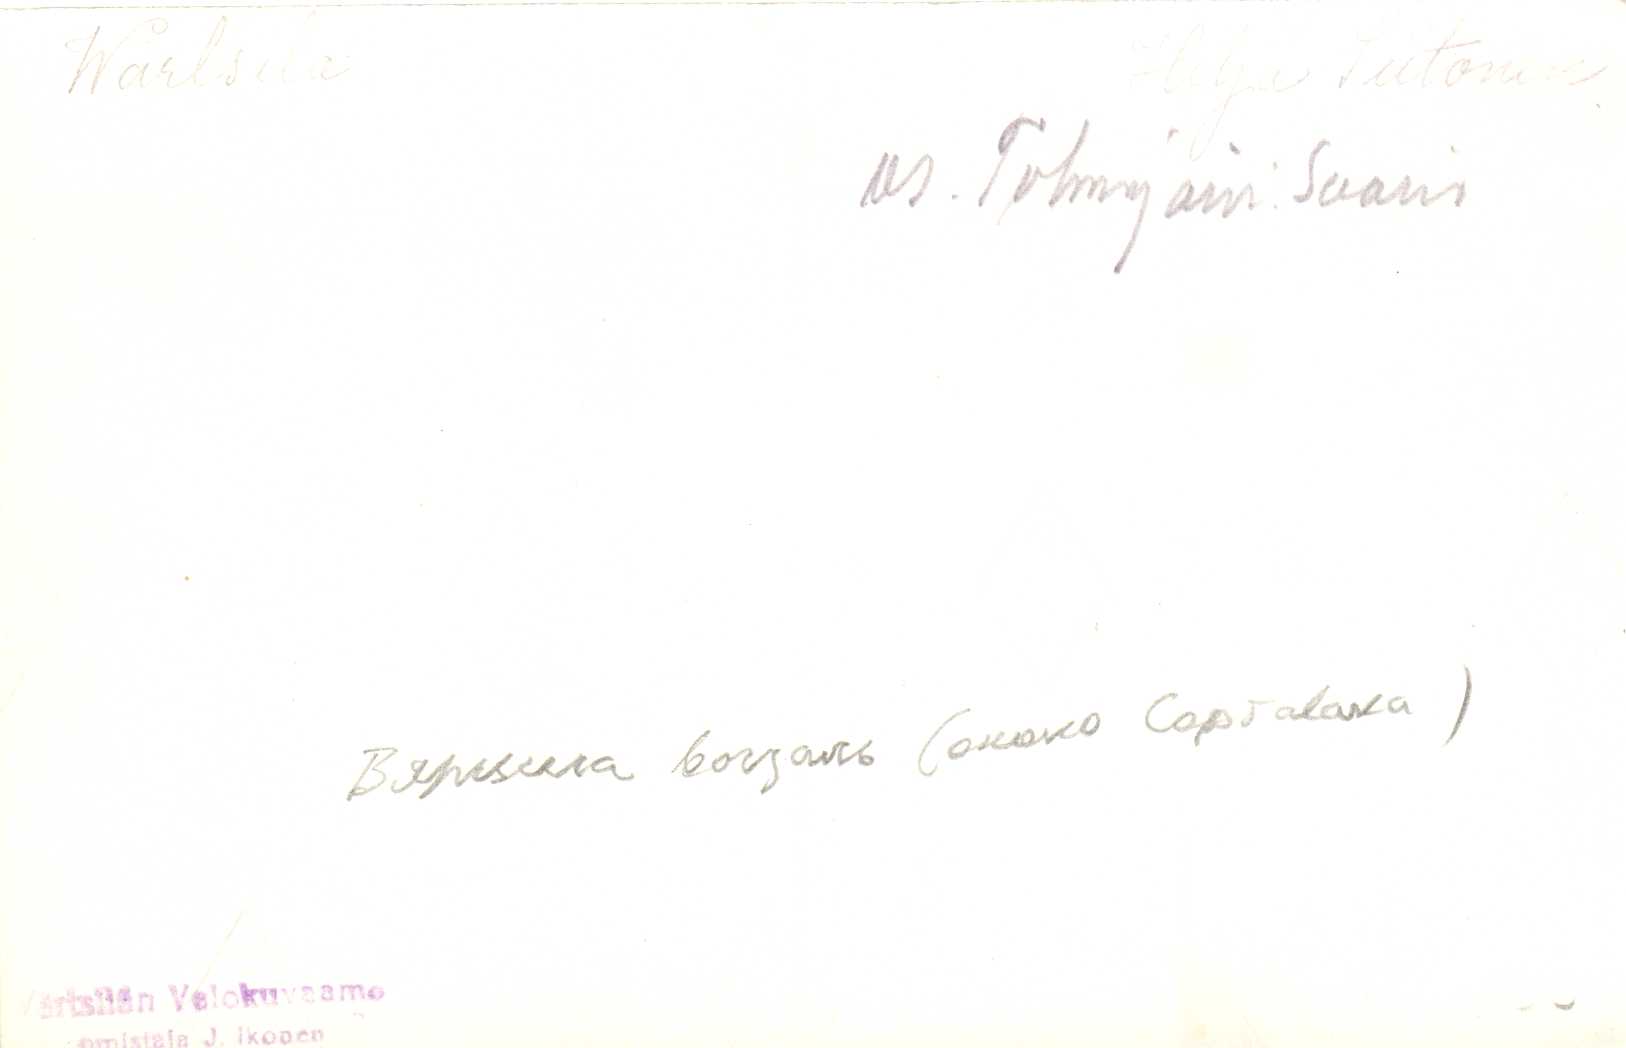 Wärtsilä Helge Tiitonen
os. Tohmajärvi. Saario
Вяртсила вогзаль (около Сартавала)
Värtsilän Valokuvaamo
omistaja J. Ikonen